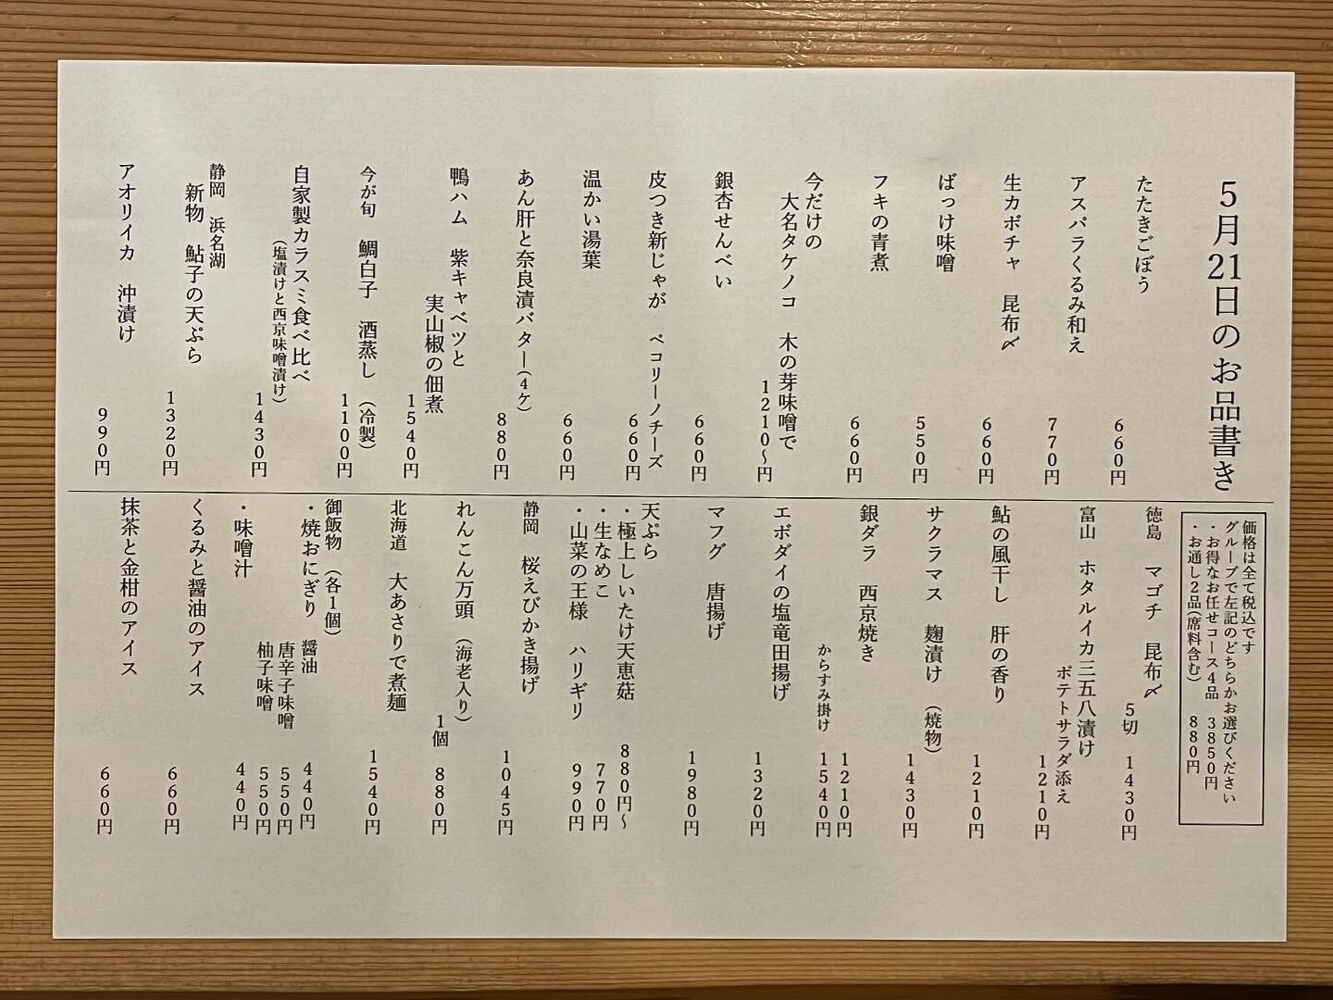 5月21日のお品書き
たたきごぼう
660円
アスパラくるみ和え
770円
生カボチャ 昆布〆
660円
ばっけ味噌
550円
フキの青煮
660円
今だけの
大名タケノコ 木の芽味噌で
1210~円
銀杏せんべい
660円
皮つき新じゃが ペコリーノチーズ
660円
温かい湯葉
660円
あん肝と奈良漬バター(4ケ)
880円
鴨ハム 紫キャベツと
実山椒の佃煮
1540円
今が旬 鯛白子 酒蒸し (冷製)
1100円
自家製カラスミ食べ比べ
(塩漬けと西京味噌漬け)
1430円
静岡 浜名湖
新物 鮎子の天ぷら
1320円
アオリイカ 沖漬け
990円
価格は全て税込です
グループで左記のどちらかお選びください
・お得なお任せコース4品 3850円
・お通し2品(席料含む) 880円
徳島 マゴチ 昆布〆
5切 1430円
富山 ホタルイカ三五八漬け
ポテトサラダ添え
1210円
鮎の風干し 肝の香り
1210円
サクラマス 麹漬け (焼物)
1430円
銀ダラ 西京焼き
1210円
からすみ掛け 1540円
エボダイの塩竜田揚げ
1320円
マフグ 唐揚げ
1980円
天ぷら
・極上しいたけ天恵菇 880円~
・生なめこ 770円
・山菜の王様 ハリギリ 990円
静岡 桜えびかき揚げ
1045円
れんこん万頭 (海老入り)
1個 880円
北海道 大あさりで煮麺
1540円
御飯物 (各1個)
・焼おにぎり 醤油 440円
唐辛子味噌 550円
柚子味噌 550円
・味噌汁 440円
くるみと醤油のアイス
660円
抹茶と金柑のアイス
660円